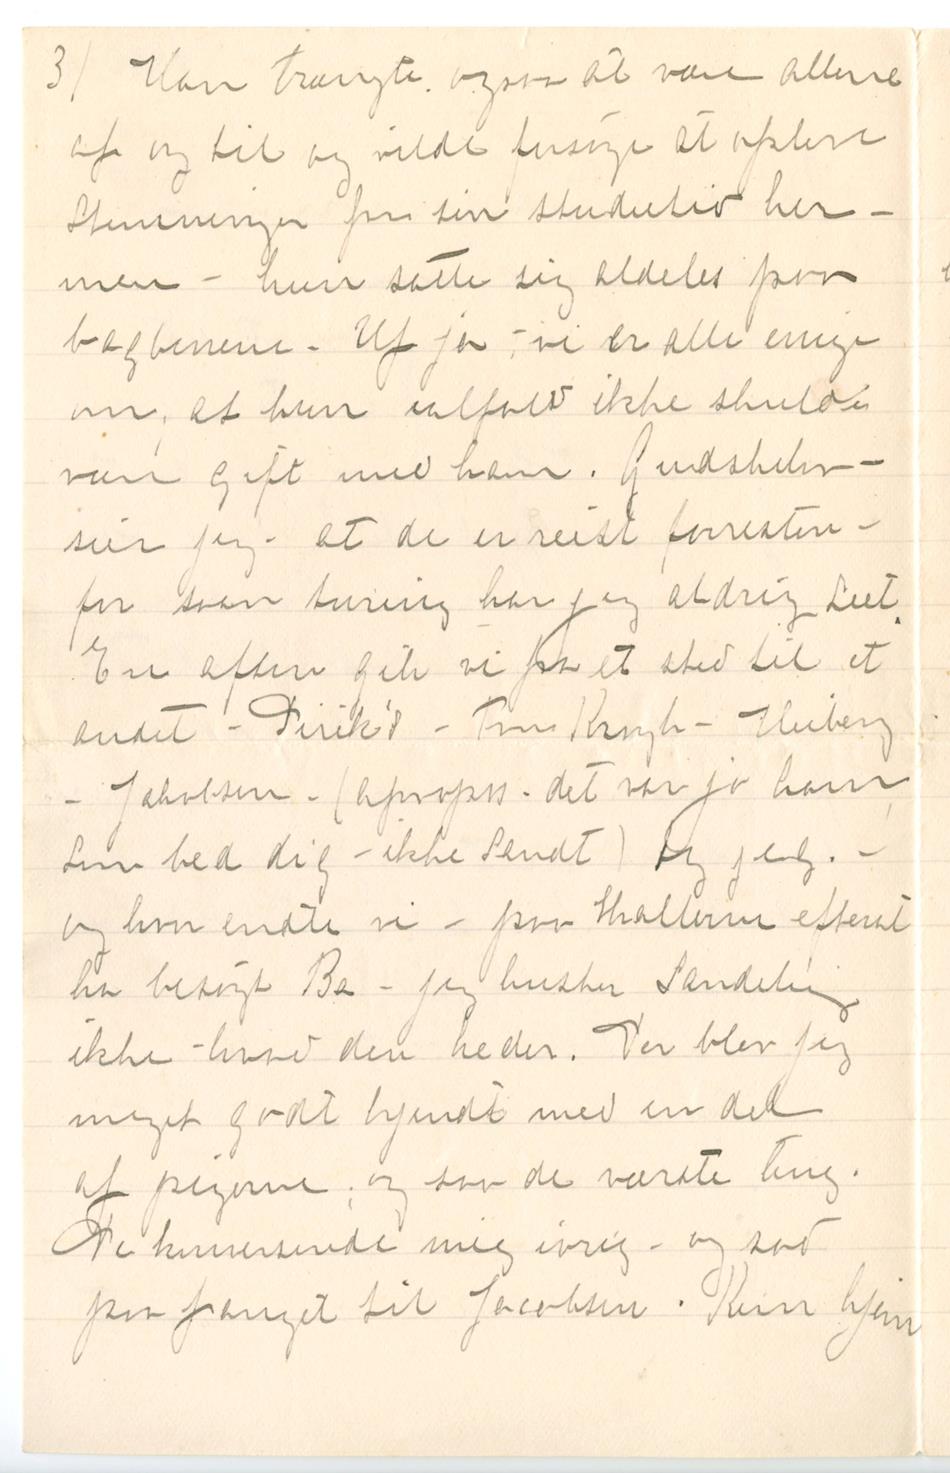 3/ Han trængte. ogsaa at være allene
af og til og vilde forsøge at opleve
Stemninger fra sin studietid her -
men - hun satte sig aldeles paa
bagbenene - Uf ja - vi er alle enige
om, at hun ialfald ikke skulde
være gift med ham. Gudskelov -
sier jeg - at de er reist forresten -
for saan turing har jeg aldrig seet.
En aften gik vi fra et sted til et
andet - Dirik's - Fru Krogh - Heiberg
- Jakobsen - (apropos - det var jo ham
som bed dig - ikke sandt) og jeg. -
og hvor endte vi - paa Hallerne efterat
ha besøgt Ba - jeg husker sandelig
ikke - hvad den heder. Der blev jeg
meget godt kjendt med en del
af pigerne, og saa de værste ting.
De konverserede mig ivrig - og sad
paa fanget til Jacobsen. Kom hjem